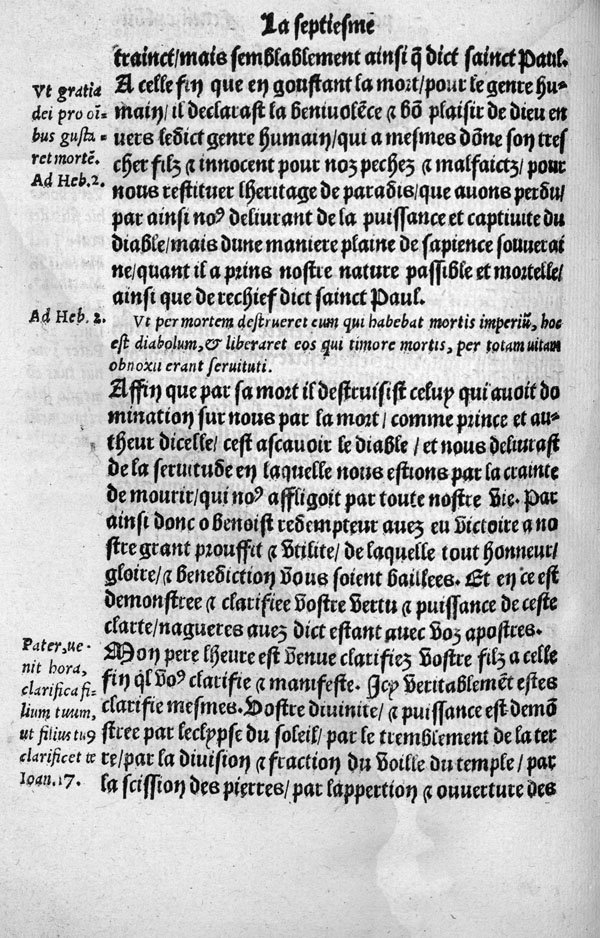 La septiesme
trainct/mais semblablement ainsi q̄ dict sainct Paul.
A celle fin que en goustant la mort/pour le genre hu-
main/il declarast la benivolẽce ⁊ bõ plaisir de dieu en
vers ledict genre humain/qui a mesmes dõne son tres
cher filz ⁊ innocent pour noz pechez ⁊ malfaictz/pour
nous restituer lheritage de paradis/que avons perdu/
par ainsi noꝰ delivrant de la puissance et captivite du
diable/mais dune maniere plaine de sapience souverai
ne/quant il a prins nostre nature passible et mortelle/
ainsi que de rechief dict sainct Paul.
Vt gratia
dei pro oĩ-
bus gusta-
ret mortẽ.
Ad Heb.2.
Ad Heb. 2.
Vt per mortem destrueret eum qui habebat mortis imperiũ, hoc
est diabolum, & liberaret eos qui timore mortis, per totam uitam
obnoxii erant seruituti.
Affin que par sa mort il destruisist celuy qui avoit do
mination sur nous par la mort/comme prince et au-
theur dicelle/cest ascavoir le diable/et nous delivrast
de la servitude en laquelle nous estions par la crainte
de mourir/qui noꝰ affligoit par toute nostre vie. Par
ainsi donc o benoist redempteur avez eu victoire a no
stre grant prouffit ⁊ vtilite/de laquelle tout honneur/
gloire/⁊ benediction vous soient baillees. Et en ce est
demonstree ⁊ clarifiee vostre vertu ⁊ puissance de ceste
clarte/nagueres avez dict estant avec voz apostres.
Mon pere lheure est venue clarifiez vostre filz a celle
fin q̃l voꝰ clarifie ⁊ manifeste. Icy veritablemẽt estes
clarifie mesmes. Vostre divinite/⁊ puissance est demõ
stree par leclypse du soleil/par le tremblement de la ter
re/par la division ⁊ fraction du voille du temple/par
la scission des pierres/par lappertion ⁊ ouverture des
Pater, ue-
nit hora,
clarifica fi-
lium tuum,
ut filius tuꝰ
clarificet te
Ioan.17.